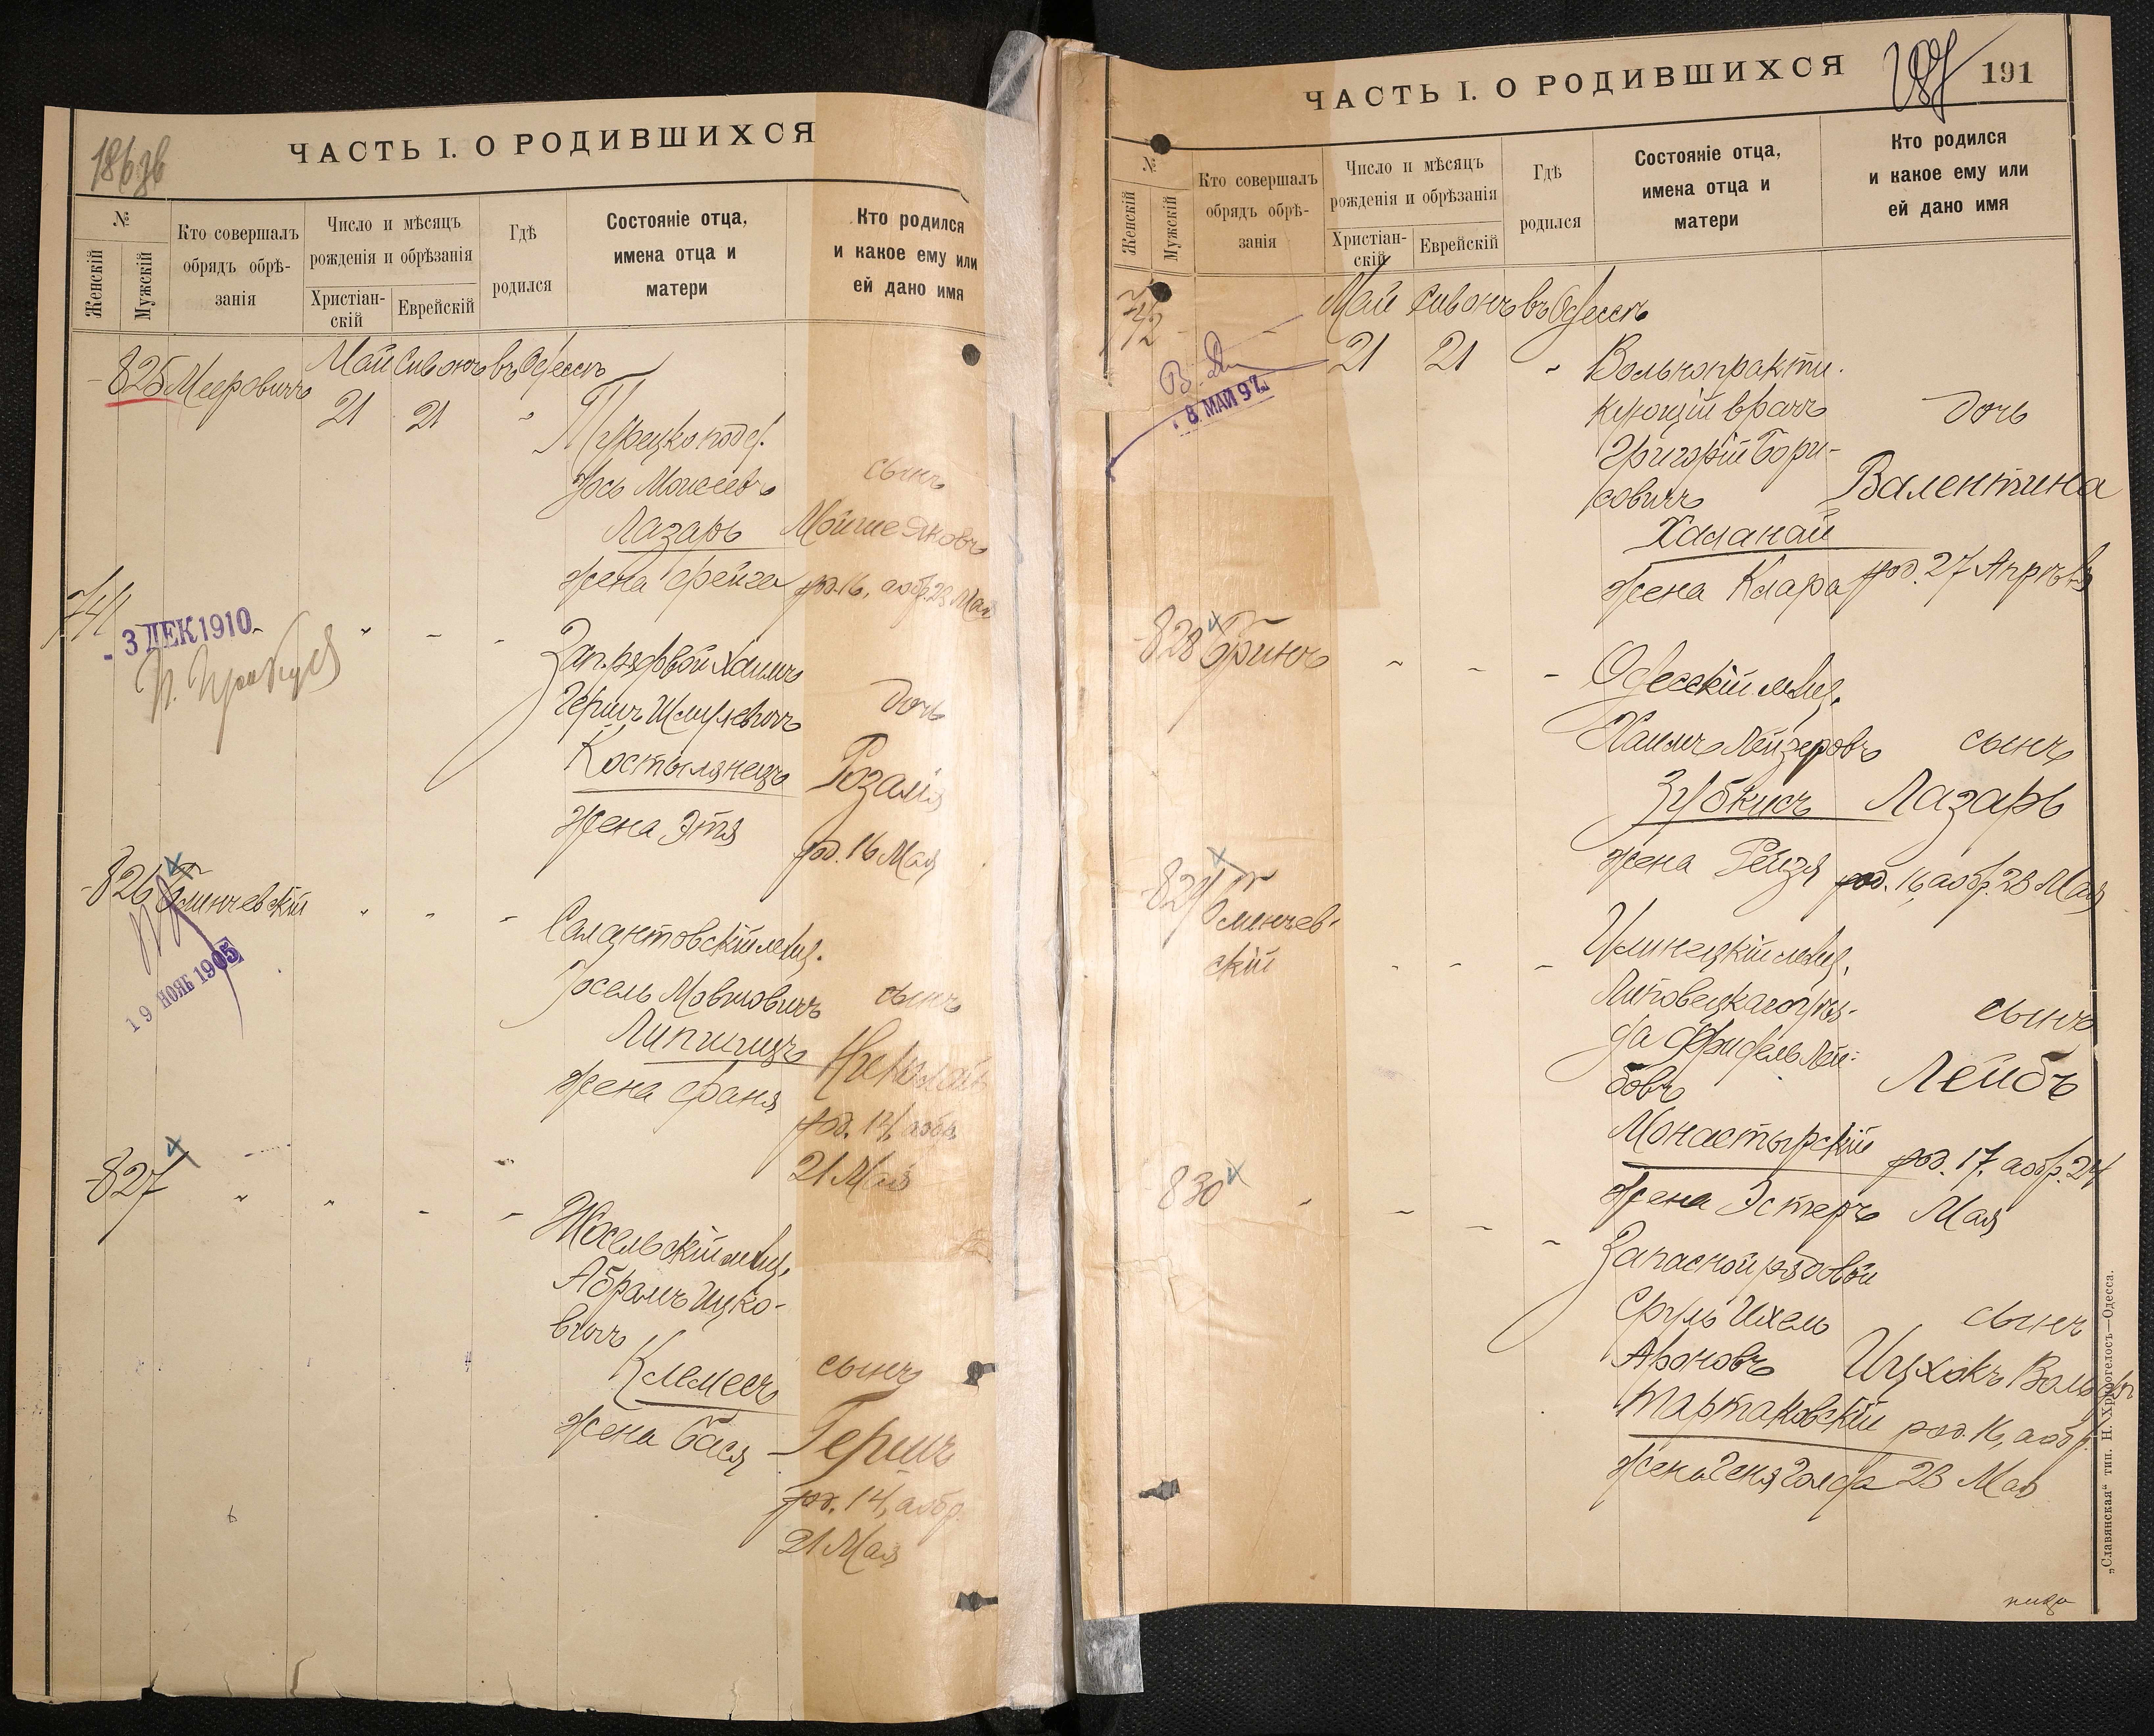 186 зв
ЧАСТЬ I. О РОДИВШИХСЯ
№
Женскій
Мужскій
Кто совершалъ
обрядъ обрѣ-
занія
Число и мѣсяцъ
рожденія и обрѣзанія
Христіан-
скій
Еврейскій
Гдѣ
родился
Состояніе отца,
имена отца и
матери
Кто родился
и какое ему или
ей дано имя
825 Мееровичъ
Май Сивонъ въ Одессѣ
21 21 "
Турецкопод.
Іось Моисеевъ
Лазарь
жена Фейга
сынъ
Мойше Яковъ
род. 16, а обр. 23 Мая
741
3 ДЕК 1910
Зап. рядовой Хаимъ
Гершъ Шмулевичъ
Костылянецъ
жена Этя
дочь
Розалія
род. 16 Мая
826
Олинчевскій
19 НОЯБ 1905
Салантовскій мѣщ.
Іосель Мовшовичъ
Липшицъ
жена Фаня
сынъ
Николай
род. 14, а обр.
21 Мая
827
" " - -
Жосельскій мѣщ.
Абрамъ Ицко-
вичъ
Клемесъ
жена Бася
сынъ
Гершъ
род. 14, а обр.
21 Мая
ЧАСТЬ I. О РОДИВШИХСЯ
191
№
Женскій
Мужскій
Кто совершалъ
обрядъ обрѣ-
занія
Число и мѣсяцъ
рожденія и обрѣзанія
Христіан-
скій
Еврейскій
Гдѣ
родился
Состояніе отца,
имена отца и
матери
Кто родился
и какое ему или
ей дано имя
742
Май Сивонъ въ Одессѣ
21 21 "
8 МАЙ 97
Вольнопракти-
кующій врачъ
Григорій Бори-
совичъ
Халанай
жена Клара
дочь
Валентина
род. 27 Апрѣля
828
Бринъ
Одесскій мѣщ.
Хаимъ Лейзеровъ
Зубкисъ
жена Рейзя
сынъ
Лазарь
род. 16, а обр. 23 Мая
829
Олинчев-
скій
Илинецкій мѣщ.
Липовецкаго уѣз-
да Фридель Лей-
бовъ
Монастырскій
жена Эстеръ
сынъ
Лейбъ
род. 17, а обр. 24
Мая
830
Запасной рядовой
Сруль Ихель
Ароновъ
Тартаковскій
жена Геня Голда
сынъ
Ицхокъ Вольфъ
род. 16, а обр.
23 Мая
„Славянская“ тип. Н. Хрисогелосъ—Одесса.